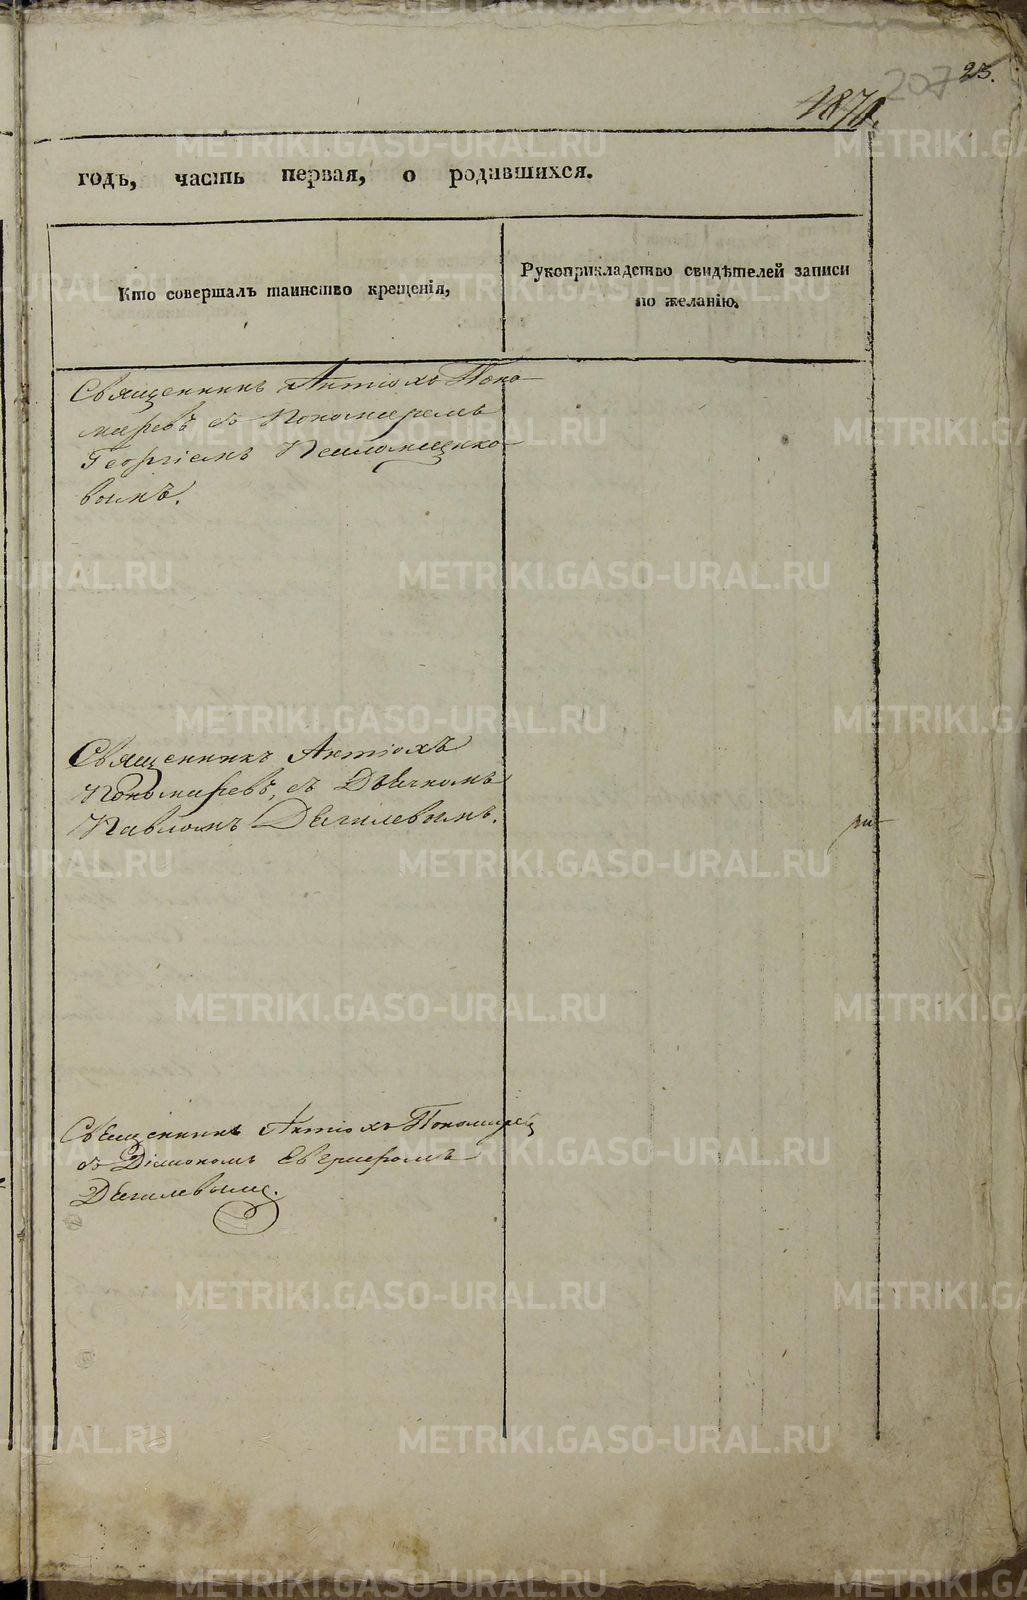 207 23.
годъ, часть первая, о родившихся.
Кто совершалъ таинство крещенія,
Рукоприкладство свидѣтелей записи
по желанію.
Священникъ Антіохъ Поно-
маревъ съ Пономаремъ
Георгіемъ
вымъ.
Священникъ Антіохъ
Пономаревъ, съ Дьячкомъ
Павломъ Дягилевымъ.
Священникъ Антіохъ Пономаревъ
съ Діакономъ
Дягилевымъ.
METRIKI.GASO-URAL.RU